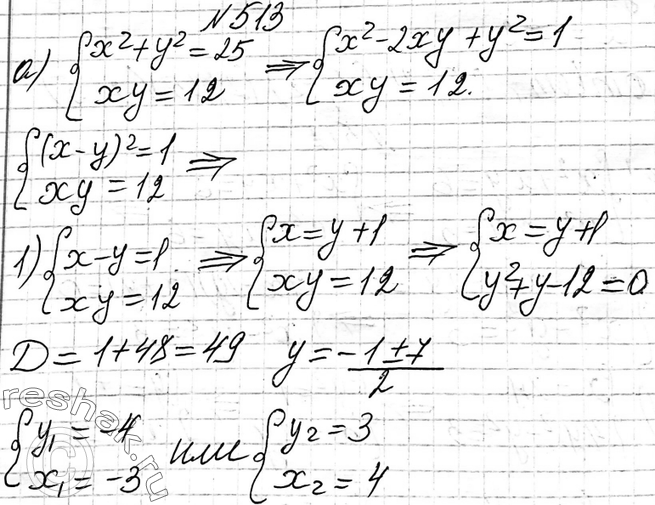 №513
а) { x² + y² = 25 ⇒ { x² - 2xy + y² = 1
xy = 12 xy = 12.
{ (x - y)² = 1 ⇒
xy = 12
1) { x - y = 1 ⇒ { x = y + 1 ⇒ { x = y + 1
xy = 12 xy = 12 y² + y - 12 = 0
D = 1 + 48 = 49 y = (-1 ± 7)/2
{ y₁ = -4 или { y₂ = 3
x₁ = -3 x₂ = 4
reshak.ru